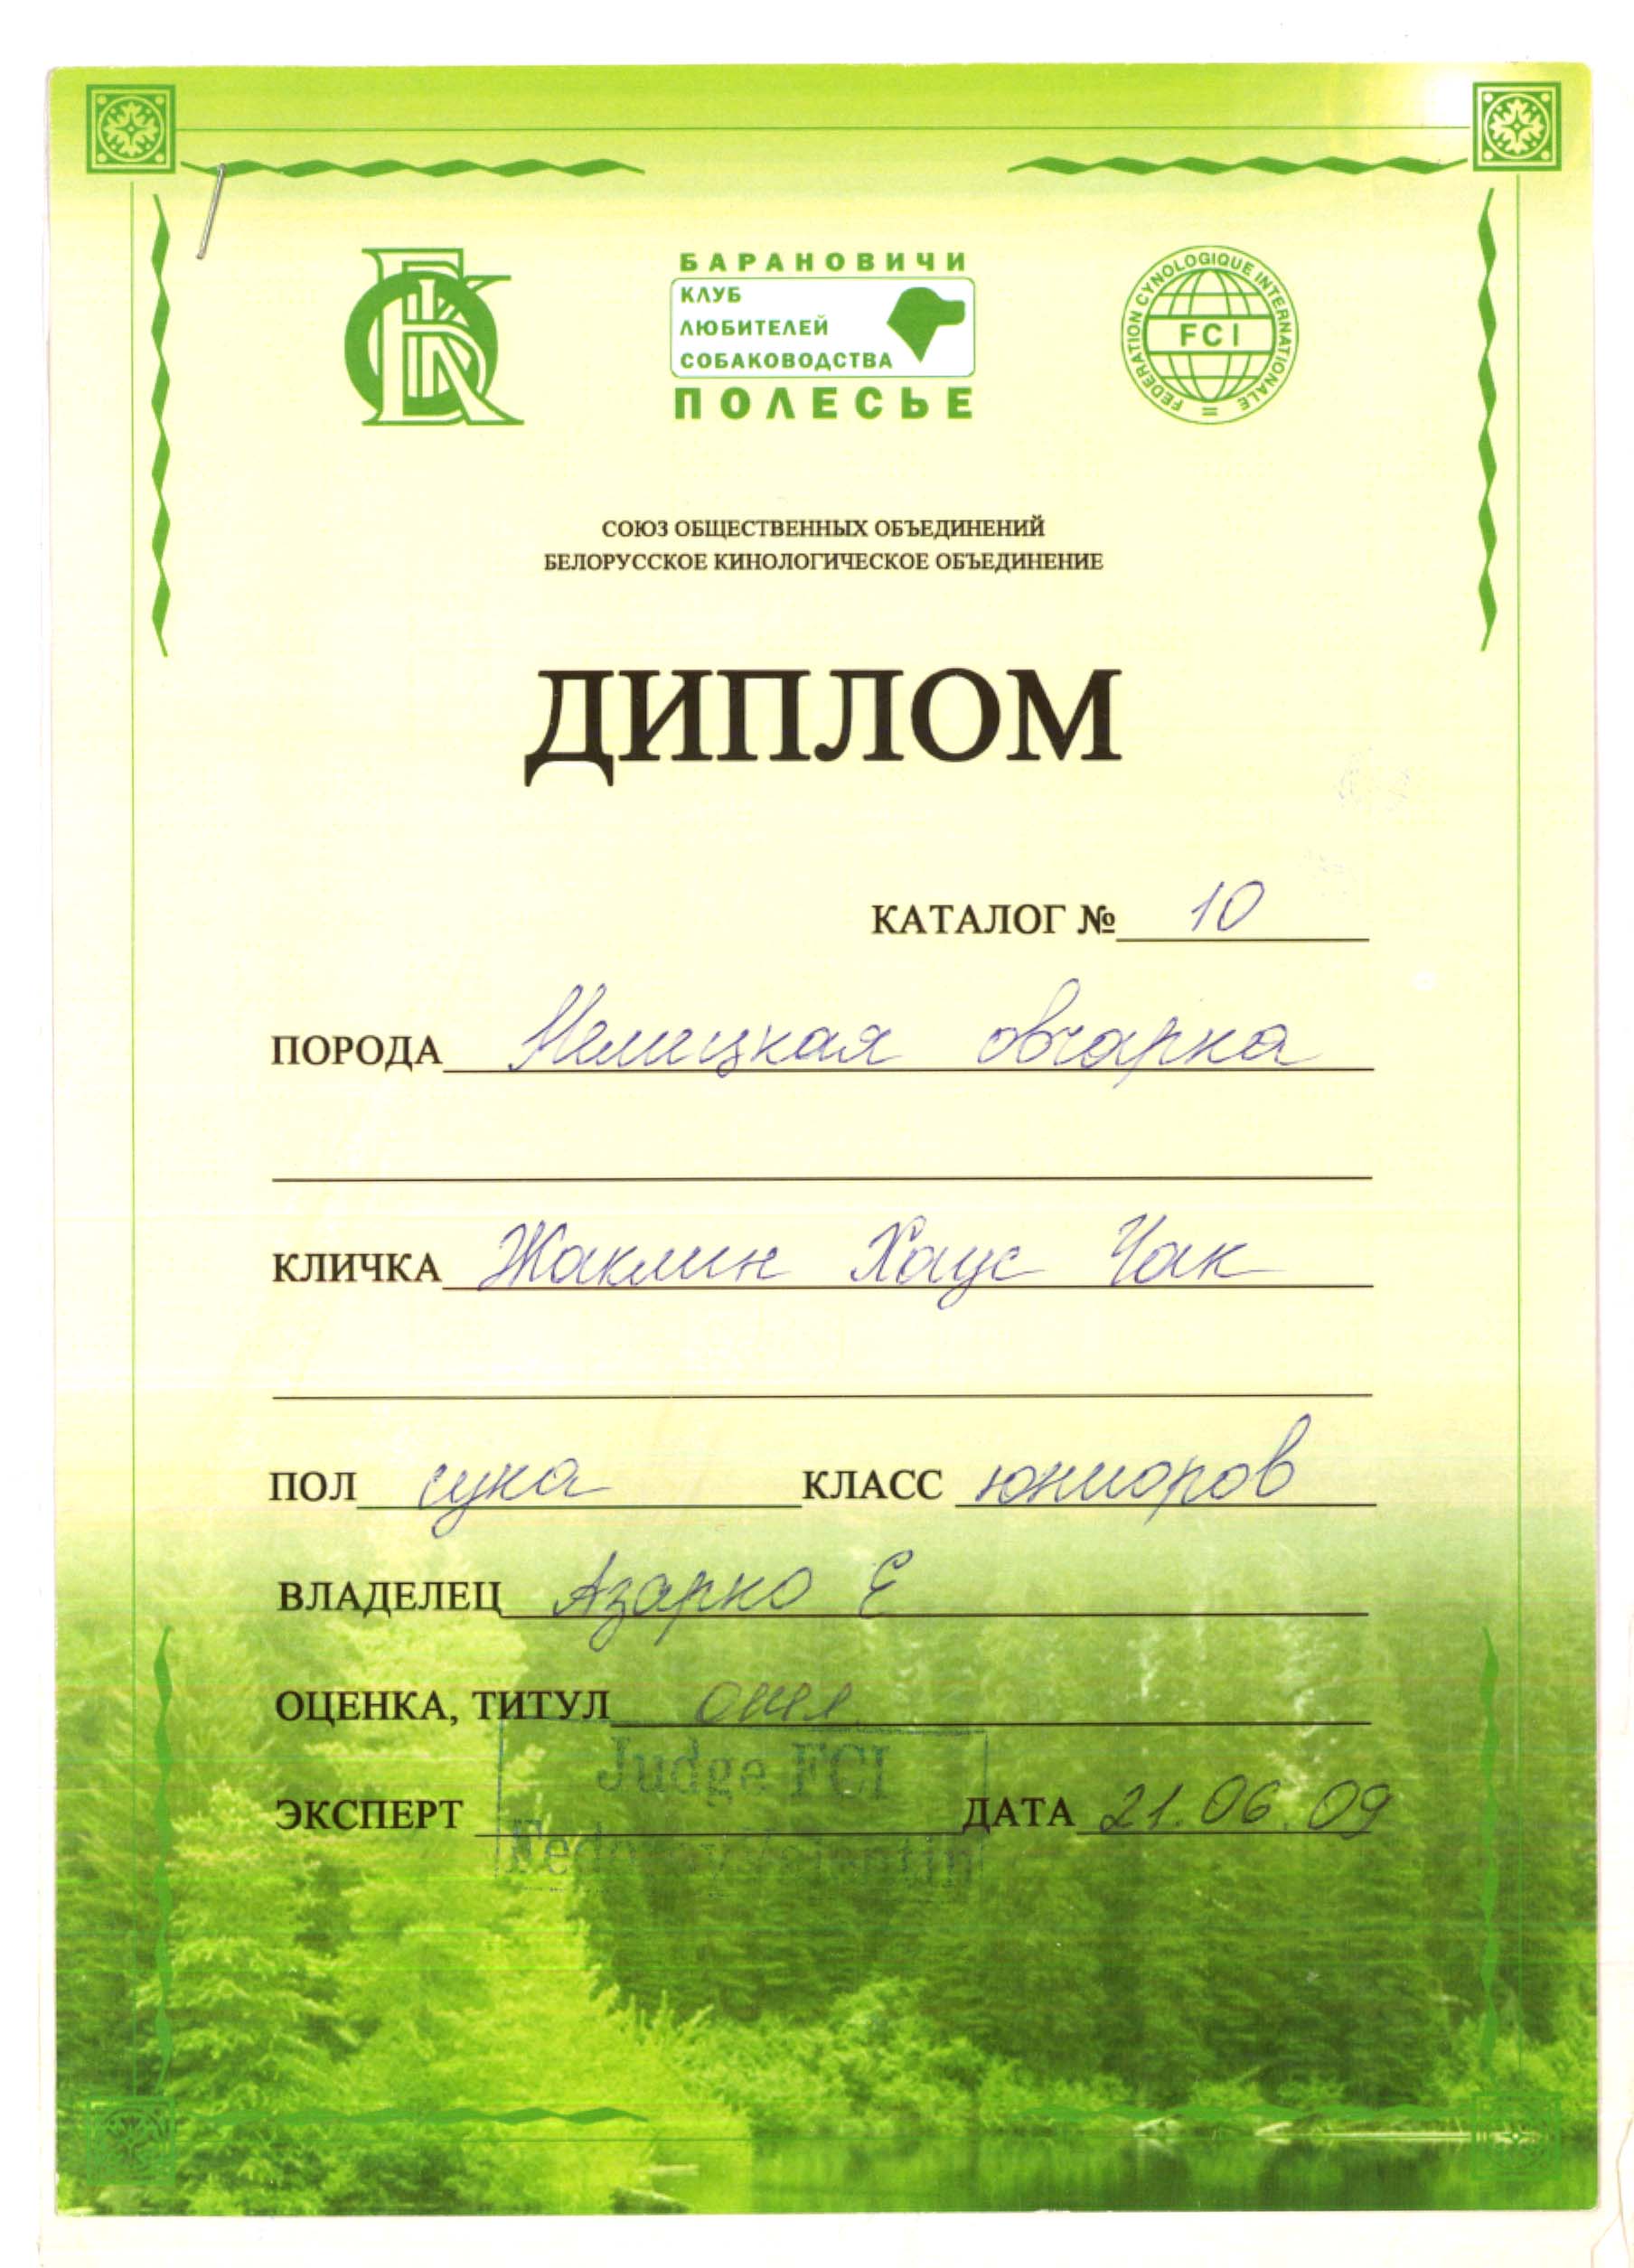 БКО
БАРАНОВИЧИ
КЛУБ
ЛЮБИТЕЛЕЙ
СОБАКОВОДСТВА
ПОЛЕСЬЕ
FEDERATION CYNOLOGIQUE INTERNATIONALE
FCI
СОЮЗ ОБЩЕСТВЕННЫХ ОБЪЕДИНЕНИЙ
БЕЛОРУССКОЕ КИНОЛОГИЧЕСКОЕ ОБЪЕДИНЕНИЕ
ДИПЛОМ
КАТАЛОГ № 10
ПОРОДА Немецкая овчарка
КЛИЧКА Жаклин Хаус Чак
ПОЛ сука КЛАСС юниоров
ВЛАДЕЛЕЦ Азарко Е
ОЦЕНКА, ТИТУЛ
Judge FCI
ЭКСПЕРТ ДАТА 21.06.09